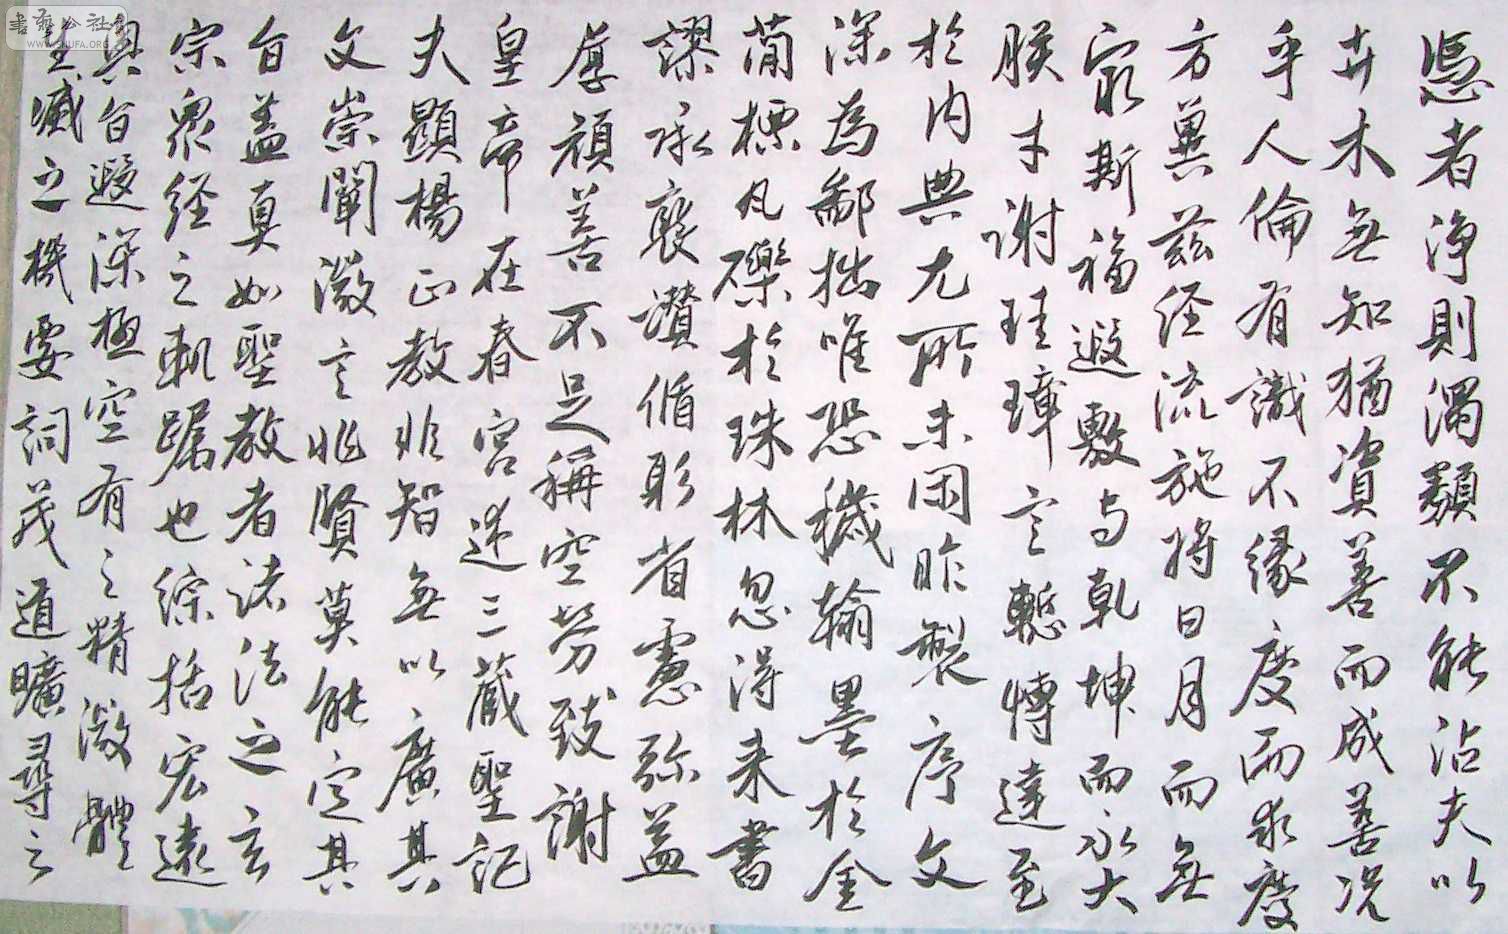 憑者净則濁類不能沾夫以
卉木無知猶資善而成善況
乎人倫有識不緣慶而求慶
方冀茲经流施将日月而無
窮斯福遐敷与乾坤而永大
朕才谢珪璋言慙博達至
於内典尤所未閑昨製序文
深為鄙拙唯恐穢翰墨於金
蕳標瓦礫於珠林忽得来書
謬承褒讃循躬省慮弥益
厚顔善不足稱空勞致謝
皇帝在春宮述三藏聖記
夫顯楊正教非智無以廣其
文崇闡微言非賢莫能定其
旨盖真如聖教者诸法之玄
宗衆經之軌躅也綜括宏遠
奥旨遐深極空有之精微體
生滅之機要詞茂道曠尋之
書藝公社
WWW.SHUFA.ORG